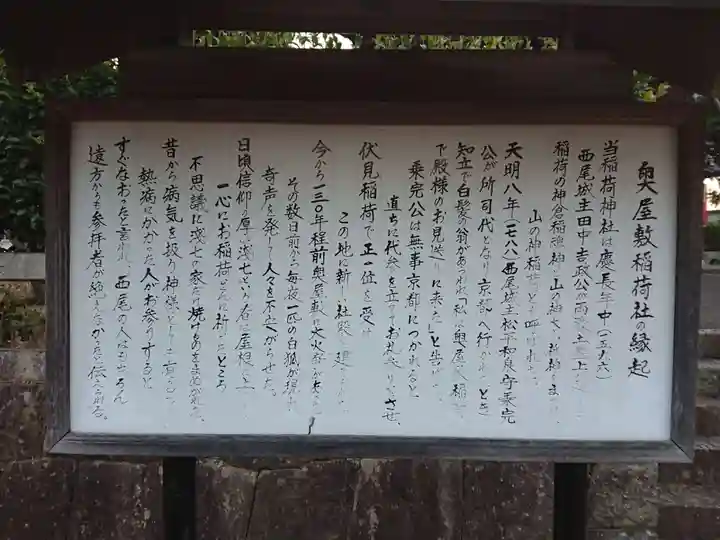 奥屋敷稲荷社の縁起
当稲荷神社は慶長年中(一五九六)
西尾城主田中吉政公が
稲荷の神倉稲魂神と山の神
山の神稲荷とも呼ばれた。
天明八年(一七八八)西尾城主松平和泉守乗完
公が所司代となり京都へ行かれるとき
知立で白髪の翁があらわれ「私は奥屋敷の稲荷
で殿様のお見送りに来た」と告げ
乗完公は無事京都につかれると
直ちに代参を立ててお礼参りさせ、
伏見稲荷で正一位を受け
この地に新しい社殿を建
今から一三〇年程前奥屋敷に大火事が
その数日前から毎夜一匹の白狐が現れ
奇声を発して人々を不安がらせた。
日頃信仰の厚い浅七という者は屋根の上
一心にお稲荷さんに祈ったところ
不思議に浅七の家だけ焼けるのをまぬがれた。
昔から病気を扱う神様として
熱病にかかった人がお参りすると
すぐなおったと言われ、西尾の人はもちろん
遠方からも参拝者が絶えなかったと伝えられる。